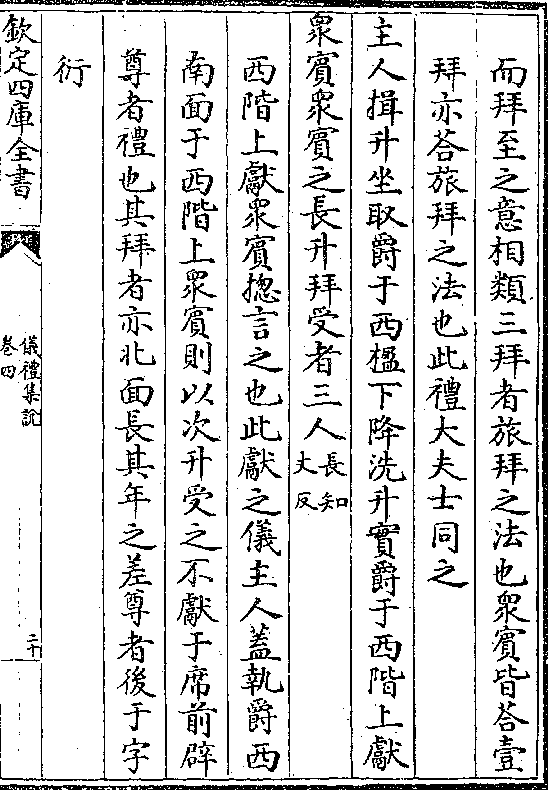 而拜至之意相類三拜者旅拜之法也衆賓皆荅壹
拜亦荅旅拜之法也此禮大夫士同之
主人揖升坐取爵于西楹下降洗升實爵于西階上獻
衆賓衆賓之長升拜受者三人長知丈反
西階上獻衆賓揔言之也此獻之儀主人蓋執爵西
南面于西階上衆賓則以次升受之不獻于席前辟
尊者禮也其拜者亦北面長其年之差尊者後于字
衍
欽定四庫全書
儀禮集說
卷四
二十